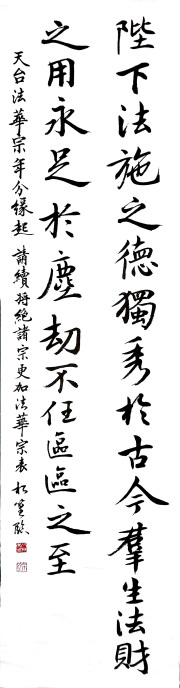 陛下法施之德獨秀於古今羣生法財
之用永足於塵劫不任區區之至
天台法華宗年分緣起 請續將絕諸宗更加法華宗表